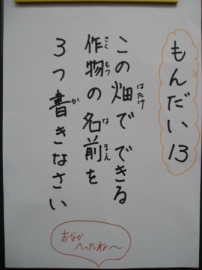 もんだい13
この畑でできる
はたけ
作物の名前を
さくもつ
なまえ
3つ書きなさい
か
おなか
へったね〜